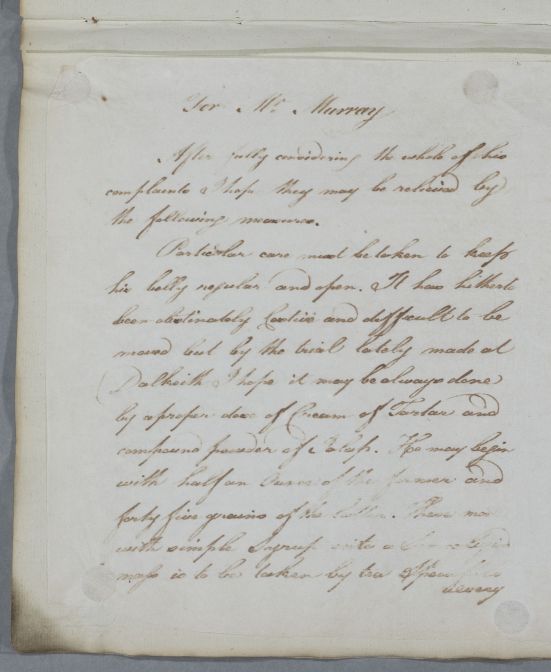 For Mr Murray
After fully considering the whole of his
complaints I hope they may be relieved by
the following measures.
Particular care must be taken to keep
his belly regular and open. It has hitherto
been obstinately Costive and difficult to be
moved but by the trial lately made at
Dalkeith I hope it may be always done
by a proper dose of Cream of Tartar and
compound powder of Jalap. He may begin
with half an Ounce of the former and
forty five grains of the latter. These
with simple Syrup into a
mass is to be taken by tea
every